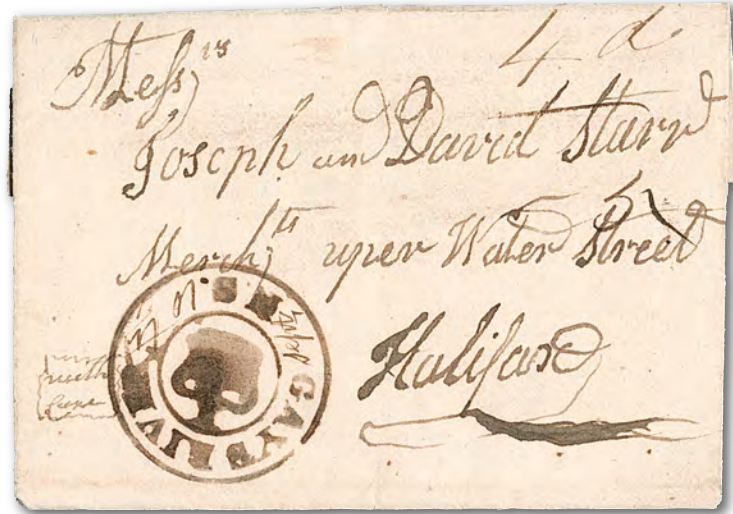 4 d
Messrs
Joseph and David Starr
Merchts uper Water Street
Halifax
N.S. GAYS RIVER
with